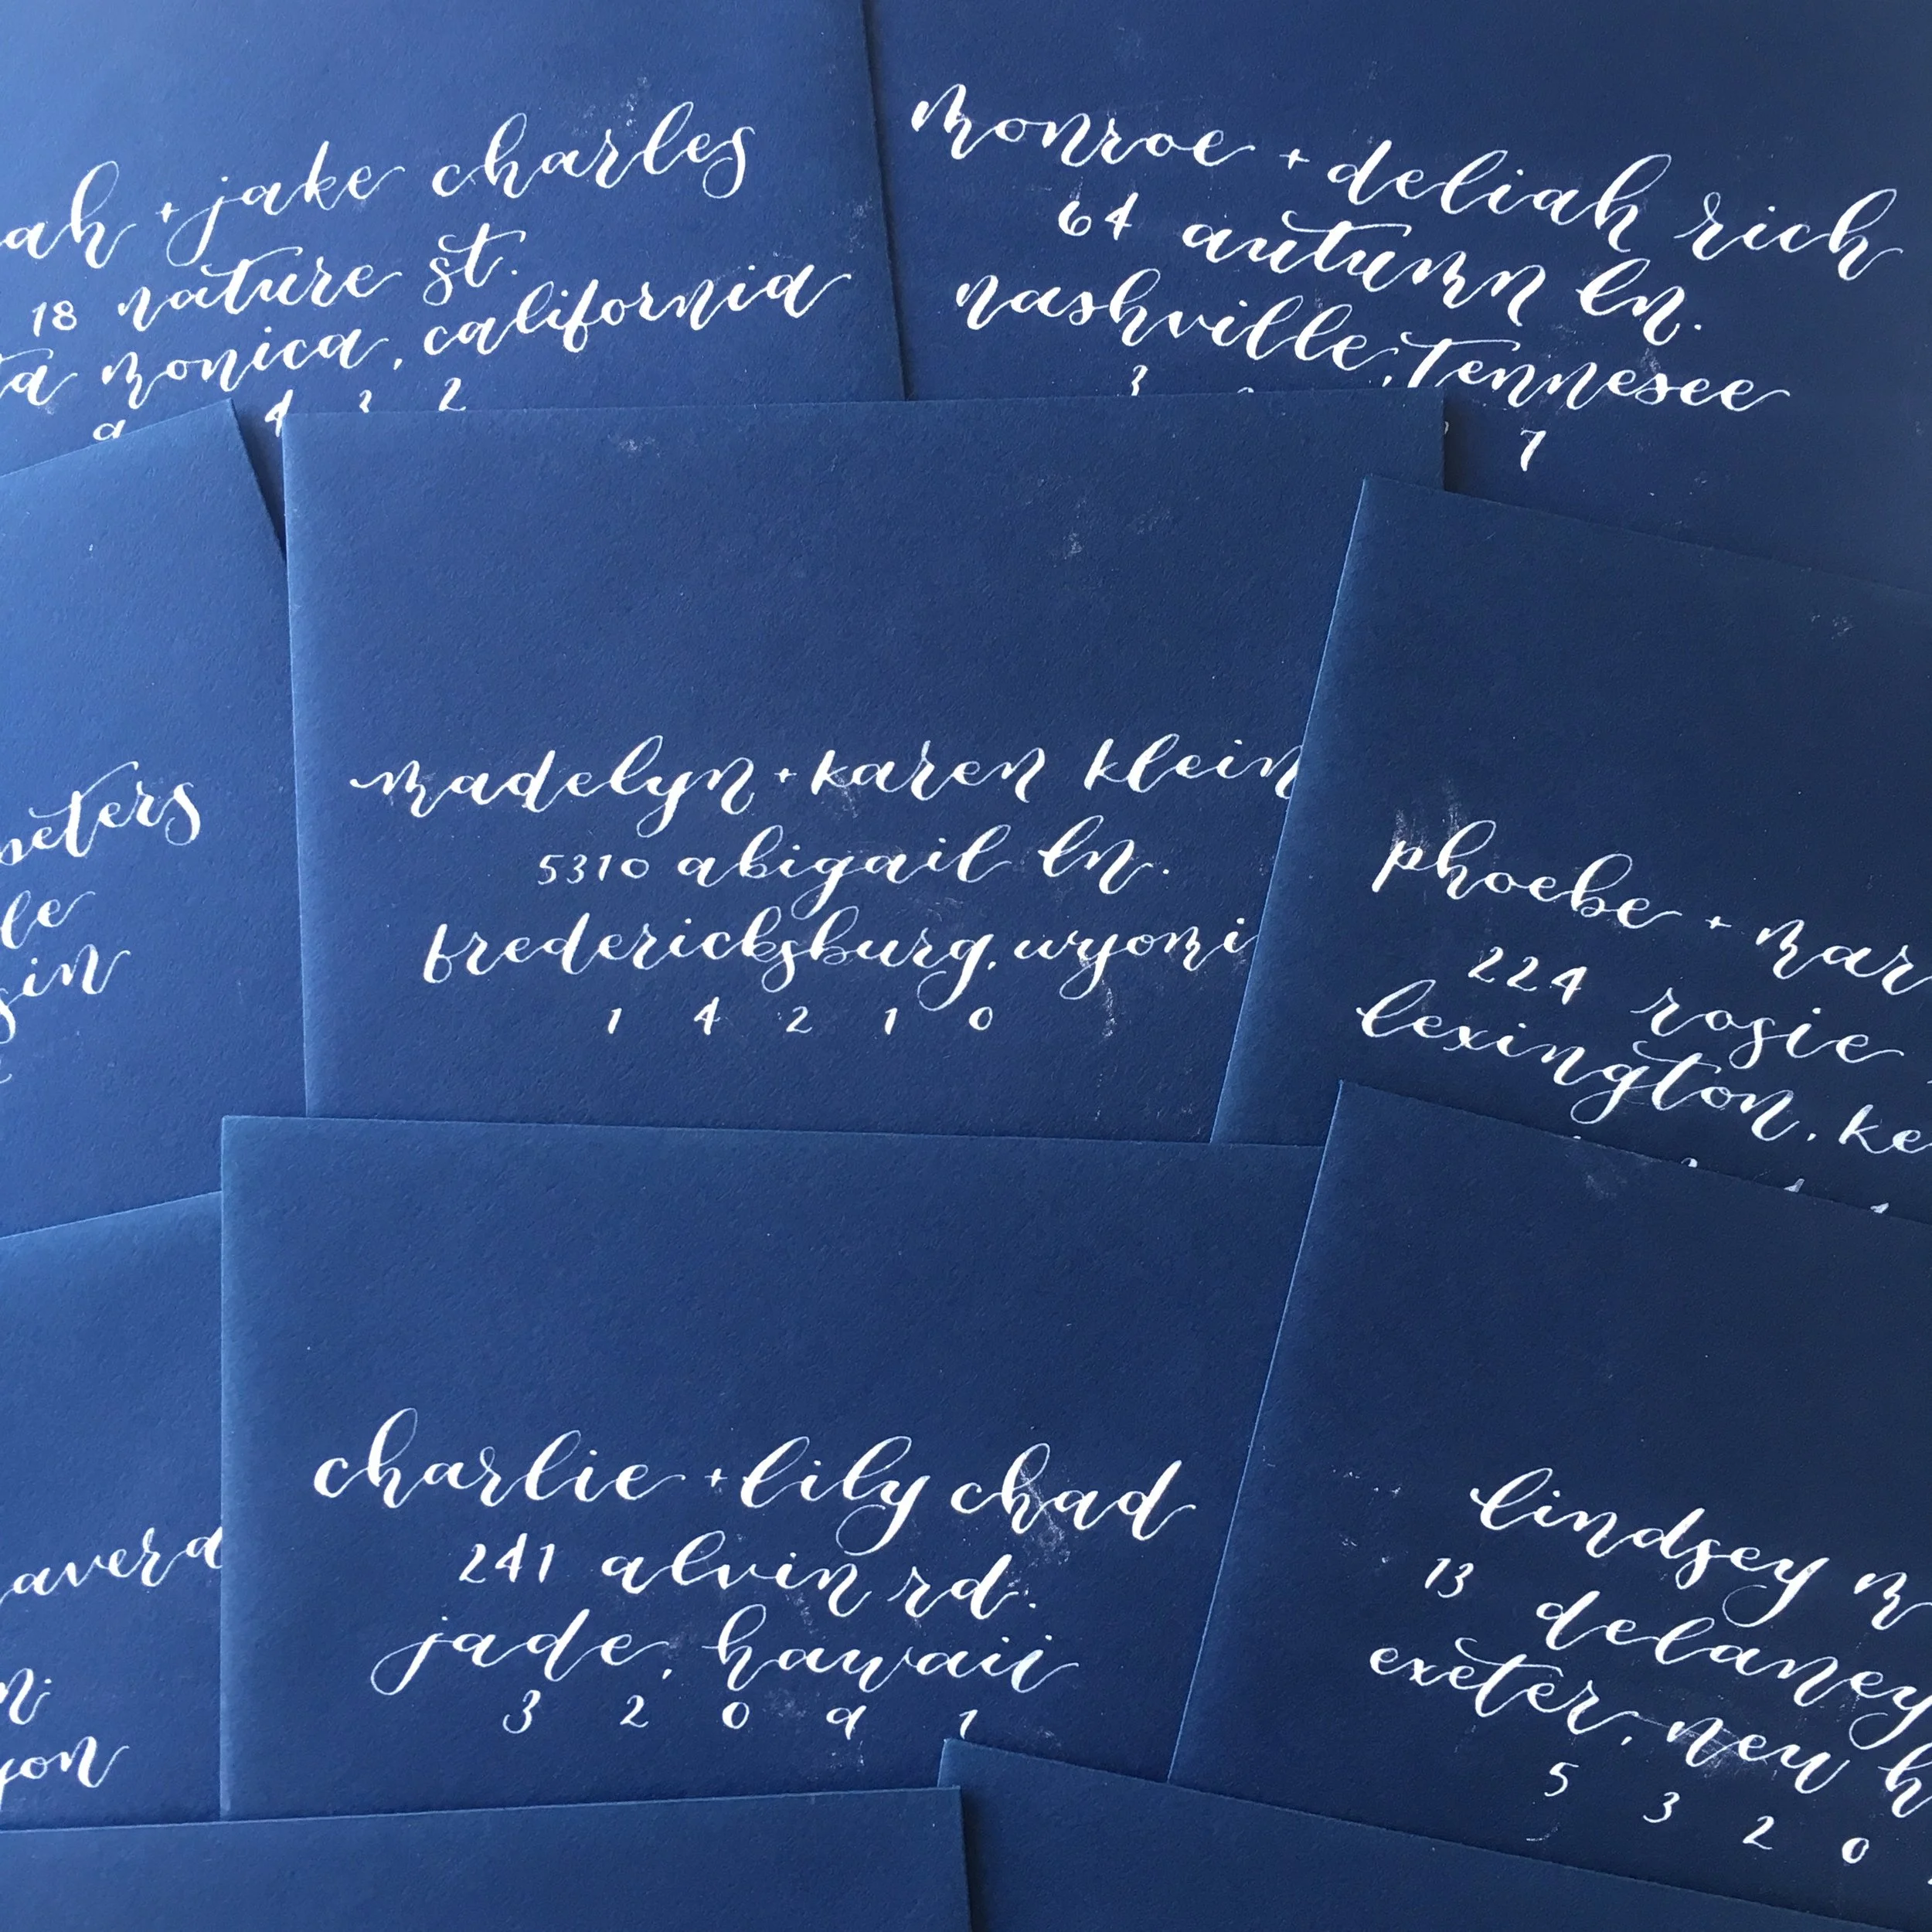 + jake charles
18 nature st.
monica, california
4 2 2
monroe + deliah rich
64 autumn ln.
nashville, Tennesee
3 7
madelyn + karen klein
5310 abigail ln.
fredericksburg, wyomi
1 4 2 1 0
phoebe + mar
224 rosie
lexington, ke
charlie + lily chad
241 alvin rd.
jade, hawaii
3 2 0 9 1
lindsey m
13 delaney
exeter, new h
5 3 2 0